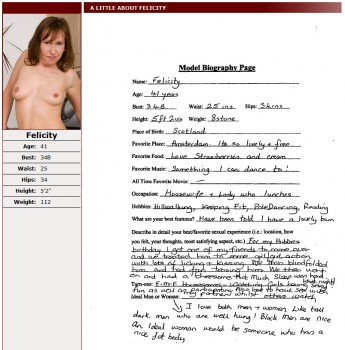 A LITTLE ABOUT FELICITY
Felicity
Age: 41
Bust: 34B
Waist: 25
Hips: 34
Height: 5'2"
Weight: 112
Model Biography Page
Name: Felicity
Age: 41 years
Bust: 34B Waist: 25 ins Hips: 34ins
Height: 5ft 2ins Weight: 8stone
Place of Birth: Scotland
Favorite Place: Amsterdam. Its so lively + free
Favorite Food: Love Strawberries and cream
Favorite Music: Something I can dance to!
All Time Favorite Movie:
Occupation: Housewife + Lady who lunches
Hobbies: Hillwalking, Keeping Fit, Pole Dancing, Reading
What are your best features? Have been told I have a lovely bum
Describe in detail your best/favorite sexual experience (i.e.: location, how
you felt, your thoughts, most satisfying aspect, etc.) For my Hubbies
birthday I got one of my friends to come over
and we treated him to some girl/girl action
with lots of licking + kissing. We then blindfolded
him and had fun teasing him. We then went
on and had a threesome that much. Sleep was had
that night!
Turn-ons: F-M-F threesomes. Watching Girls having
fun as well as participating. Also love to have sex with
my partner whilst others watch
Ideal Man or Woman:
I love both men + women. Like tall
dark men who are well hung! Black men are nice
An ideal woman would be someone who has a
nice fat body